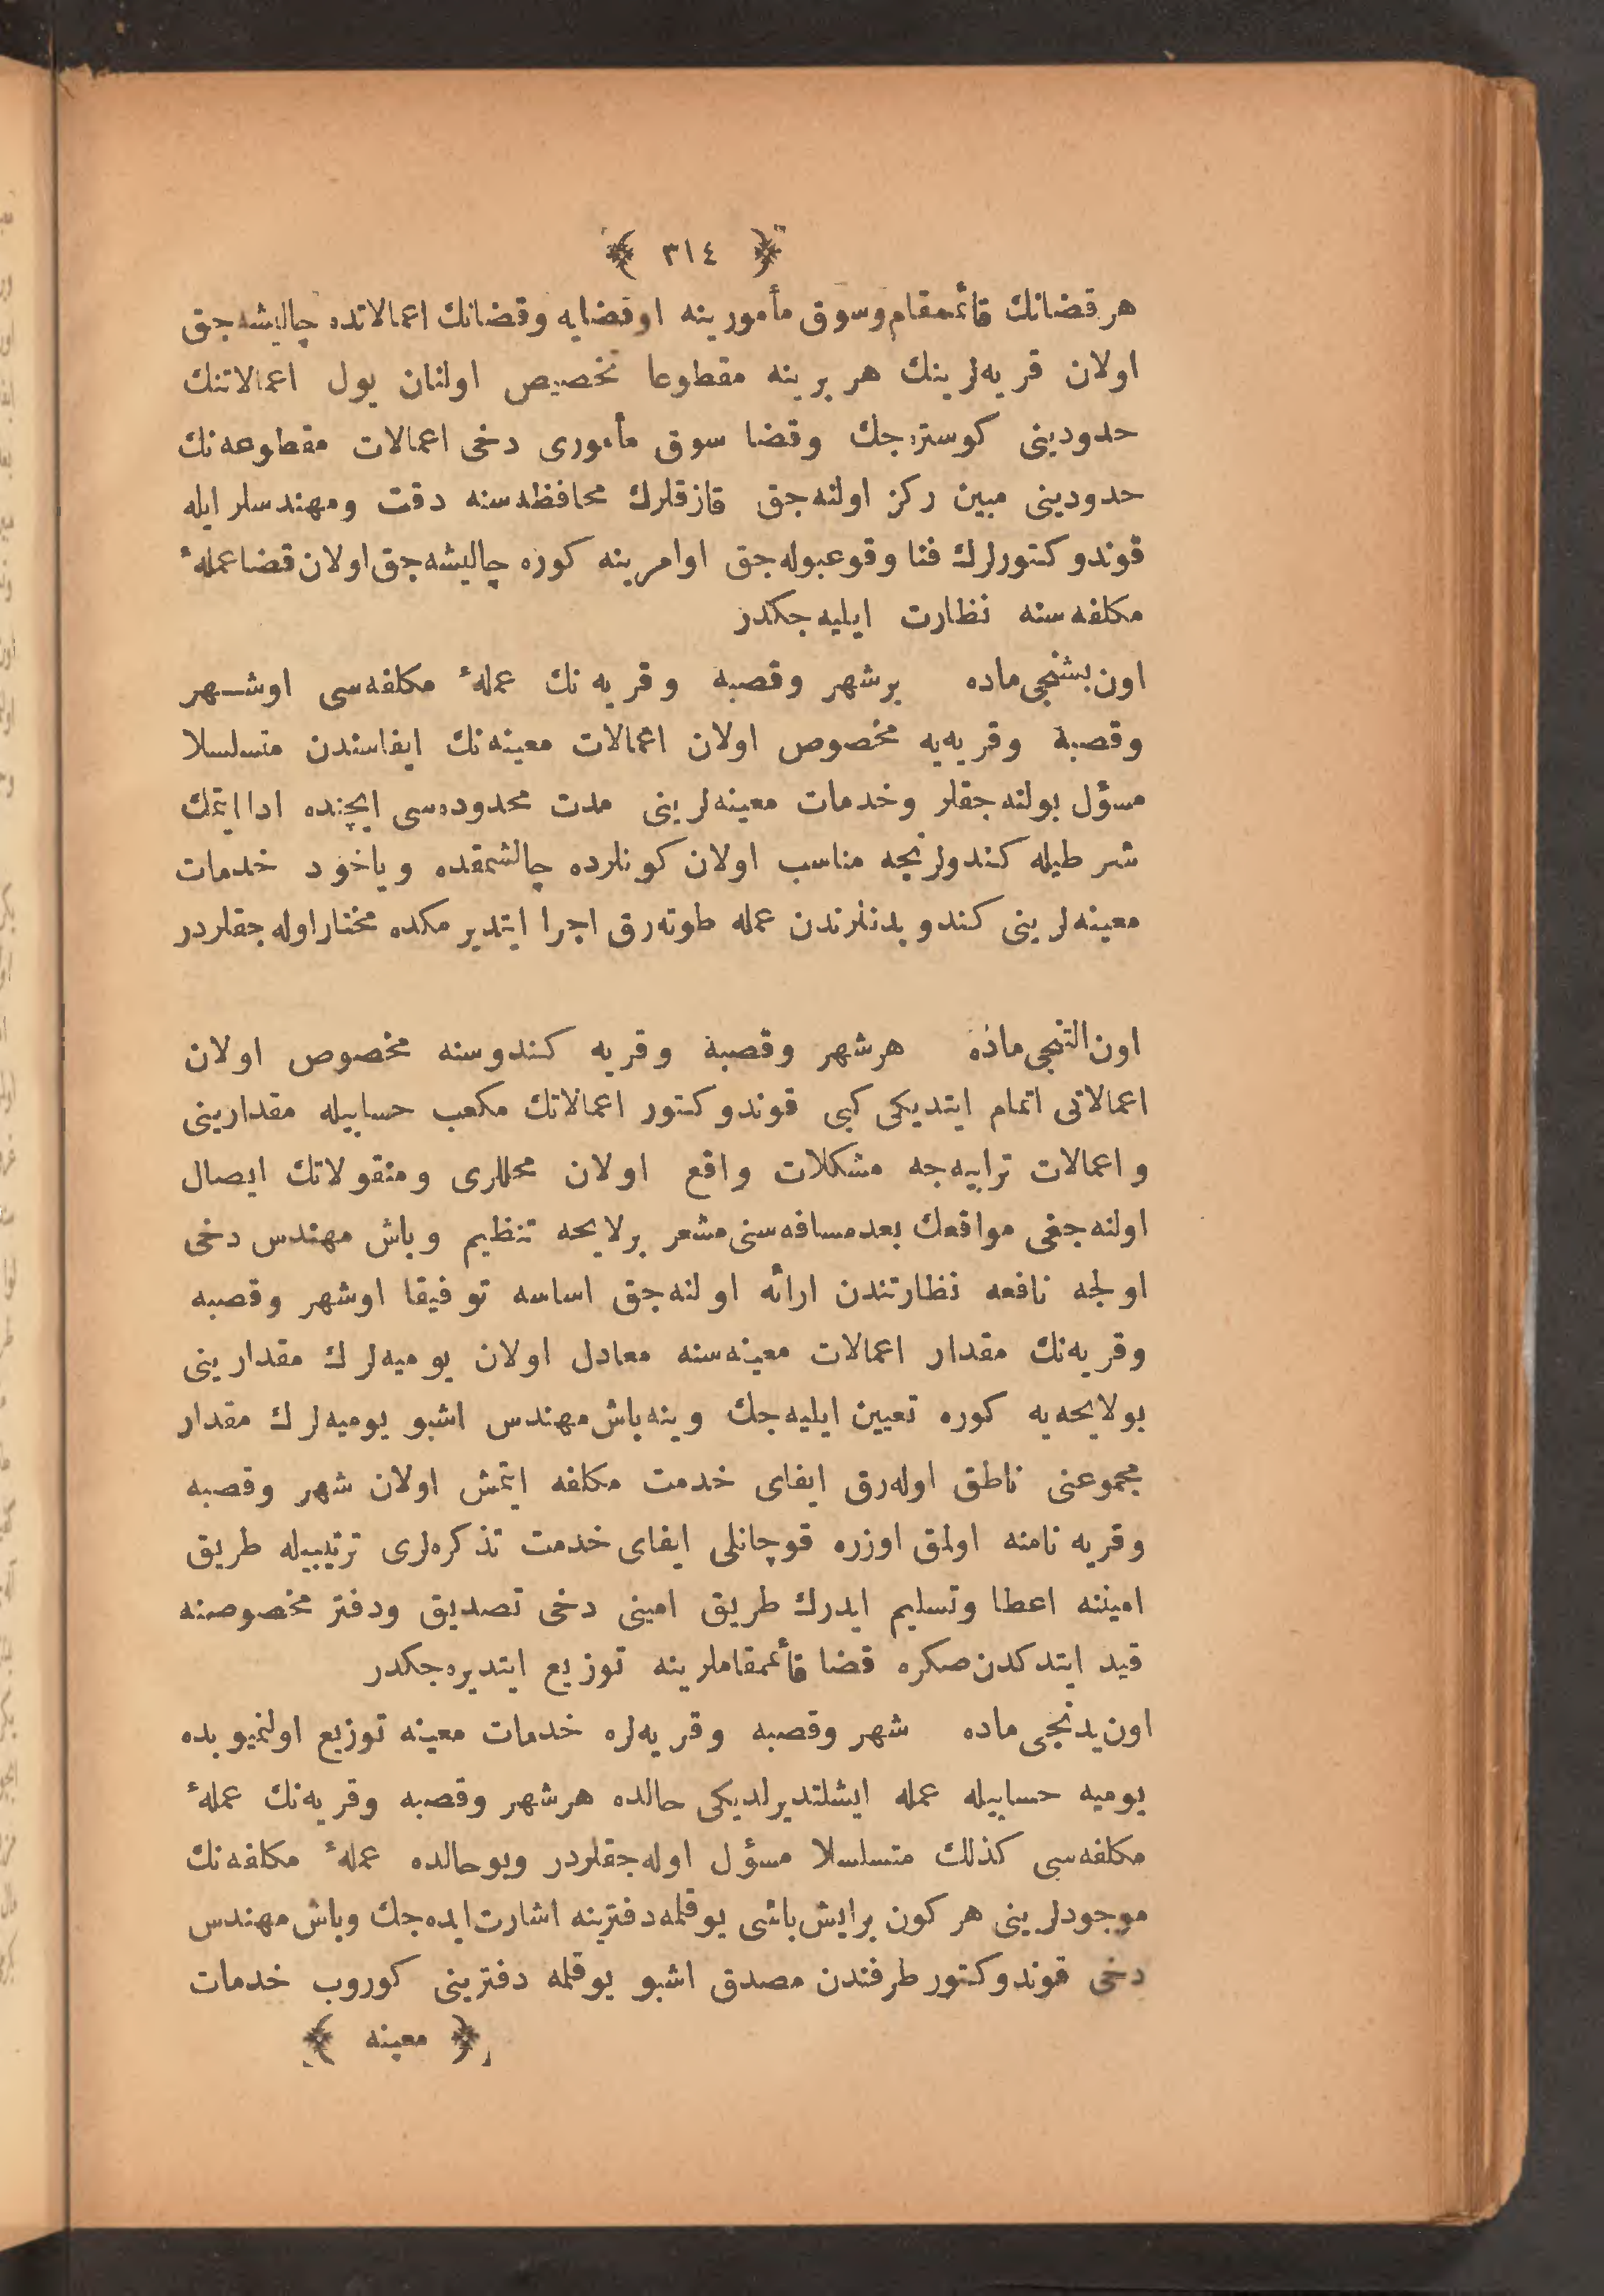 ﴿ ٣١٤ ﴾
هر قضانك قائممقام وسوق مأمورينه اوقضايه وقضانك اعمالاتده چاليشه‌جق
اولان قريه‌لرينك هر برينه مقطوعا تخصيص اولنان يول اعمالاتنك
حدودينى كوستره‌جك وقضا سوق مأمورى دخى اعمالات مقطوعه‌نك
حدودينى مبين ركز اولنه‌جق قازقلرك محافظه‌سنه دقت ومهندسلر ايله
قوندوكتورلرك فنا وقوعبوله‌جق اوامرينه كوره چاليشه‌جق اولان قضا عملهٔ
مكلفه‌سنه نظارت ايليه‌جكدر
اون بشنجى ماده بر شهر وقصبه وقريه نك عملهٔ مكلفه‌سى اوشهر
وقصبه وقريه‌يه مخصوص اولان اعمالات معينه‌نك ايفاسندن متسلسلا
مسؤل بولنه‌جقلر وخدمات معينه‌لرينى مدت محدوده‌سى ايچنده ادا ايتمك
شرطيله كندولرنجه مناسب اولان كونلرده چالشمقده وياخود خدمات
معينه‌لرينى كندو بدنلرندن عمله طوته‌رق اجرا ايتديرمكده مختار اوله‌جقلردر
اون التنجى ماده هر شهر وقصبه وقريه كندوسنه مخصوص اولان
اعمالاتى اتمام ايتديكى كبى قوندوكتور اعمالاتك مكعب حسابيله مقدارينى
واعمالات ترابيه‌جه مشكلات واقع اولان محللرى ومنقولاتك ايصال
اولنه‌جغى مواقعك بعد مسافه‌سنى مشعر بر لايحه تنظيم وباش مهندس دخى
اولجه نافعه نظارتندن ارائه اولنه‌جق اساسه توفيقا اوشهر وقصبه
وقريه‌نك مقدار اعمالات معينه‌سنه معادل اولان يوميه‌لرك مقدارينى
بولايحه‌يه كوره تعيين ايليه‌جك وينه باش مهندس اشبو يوميه‌لرك مقدار
مجموعنى ناطق اوله‌رق ايفاى خدمت مكلفه ايتمش اولان شهر وقصبه
وقريه نامنه اولمق اوزره قوچانلى ايفاى خدمت تذكره‌لرى ترتيبيله طريق
اميننه اعطا وتسليم ايدرك طريق امينى دخى تصديق ودفتر مخصوصنه
قيد ايتدكدن صكره قضا قائممقاملرينه توزيع ايتديره‌جكدر
اون يدنجى ماده شهر وقصبه وقريه‌لره خدمات معينه توزيع اولنميوبده
يوميه حسابيله عمله ايشلتديرلديكى حالده هر شهر وقصبه وقريه‌نك عملهٔ
مكلفه‌سى كذلك متسلسلا مسؤل اوله‌جقلردر وبوحالده عملهٔ مكلفه‌نك
موجودلرينى هر كون بر ايش باشى يوقلمه دفترينه اشارت ايده‌جك وباش مهندس
دخى قوندوكتور طرفندن مصدق اشبو يوقلمه دفترينى كوروب خدمات
﴿ معينه ﴾